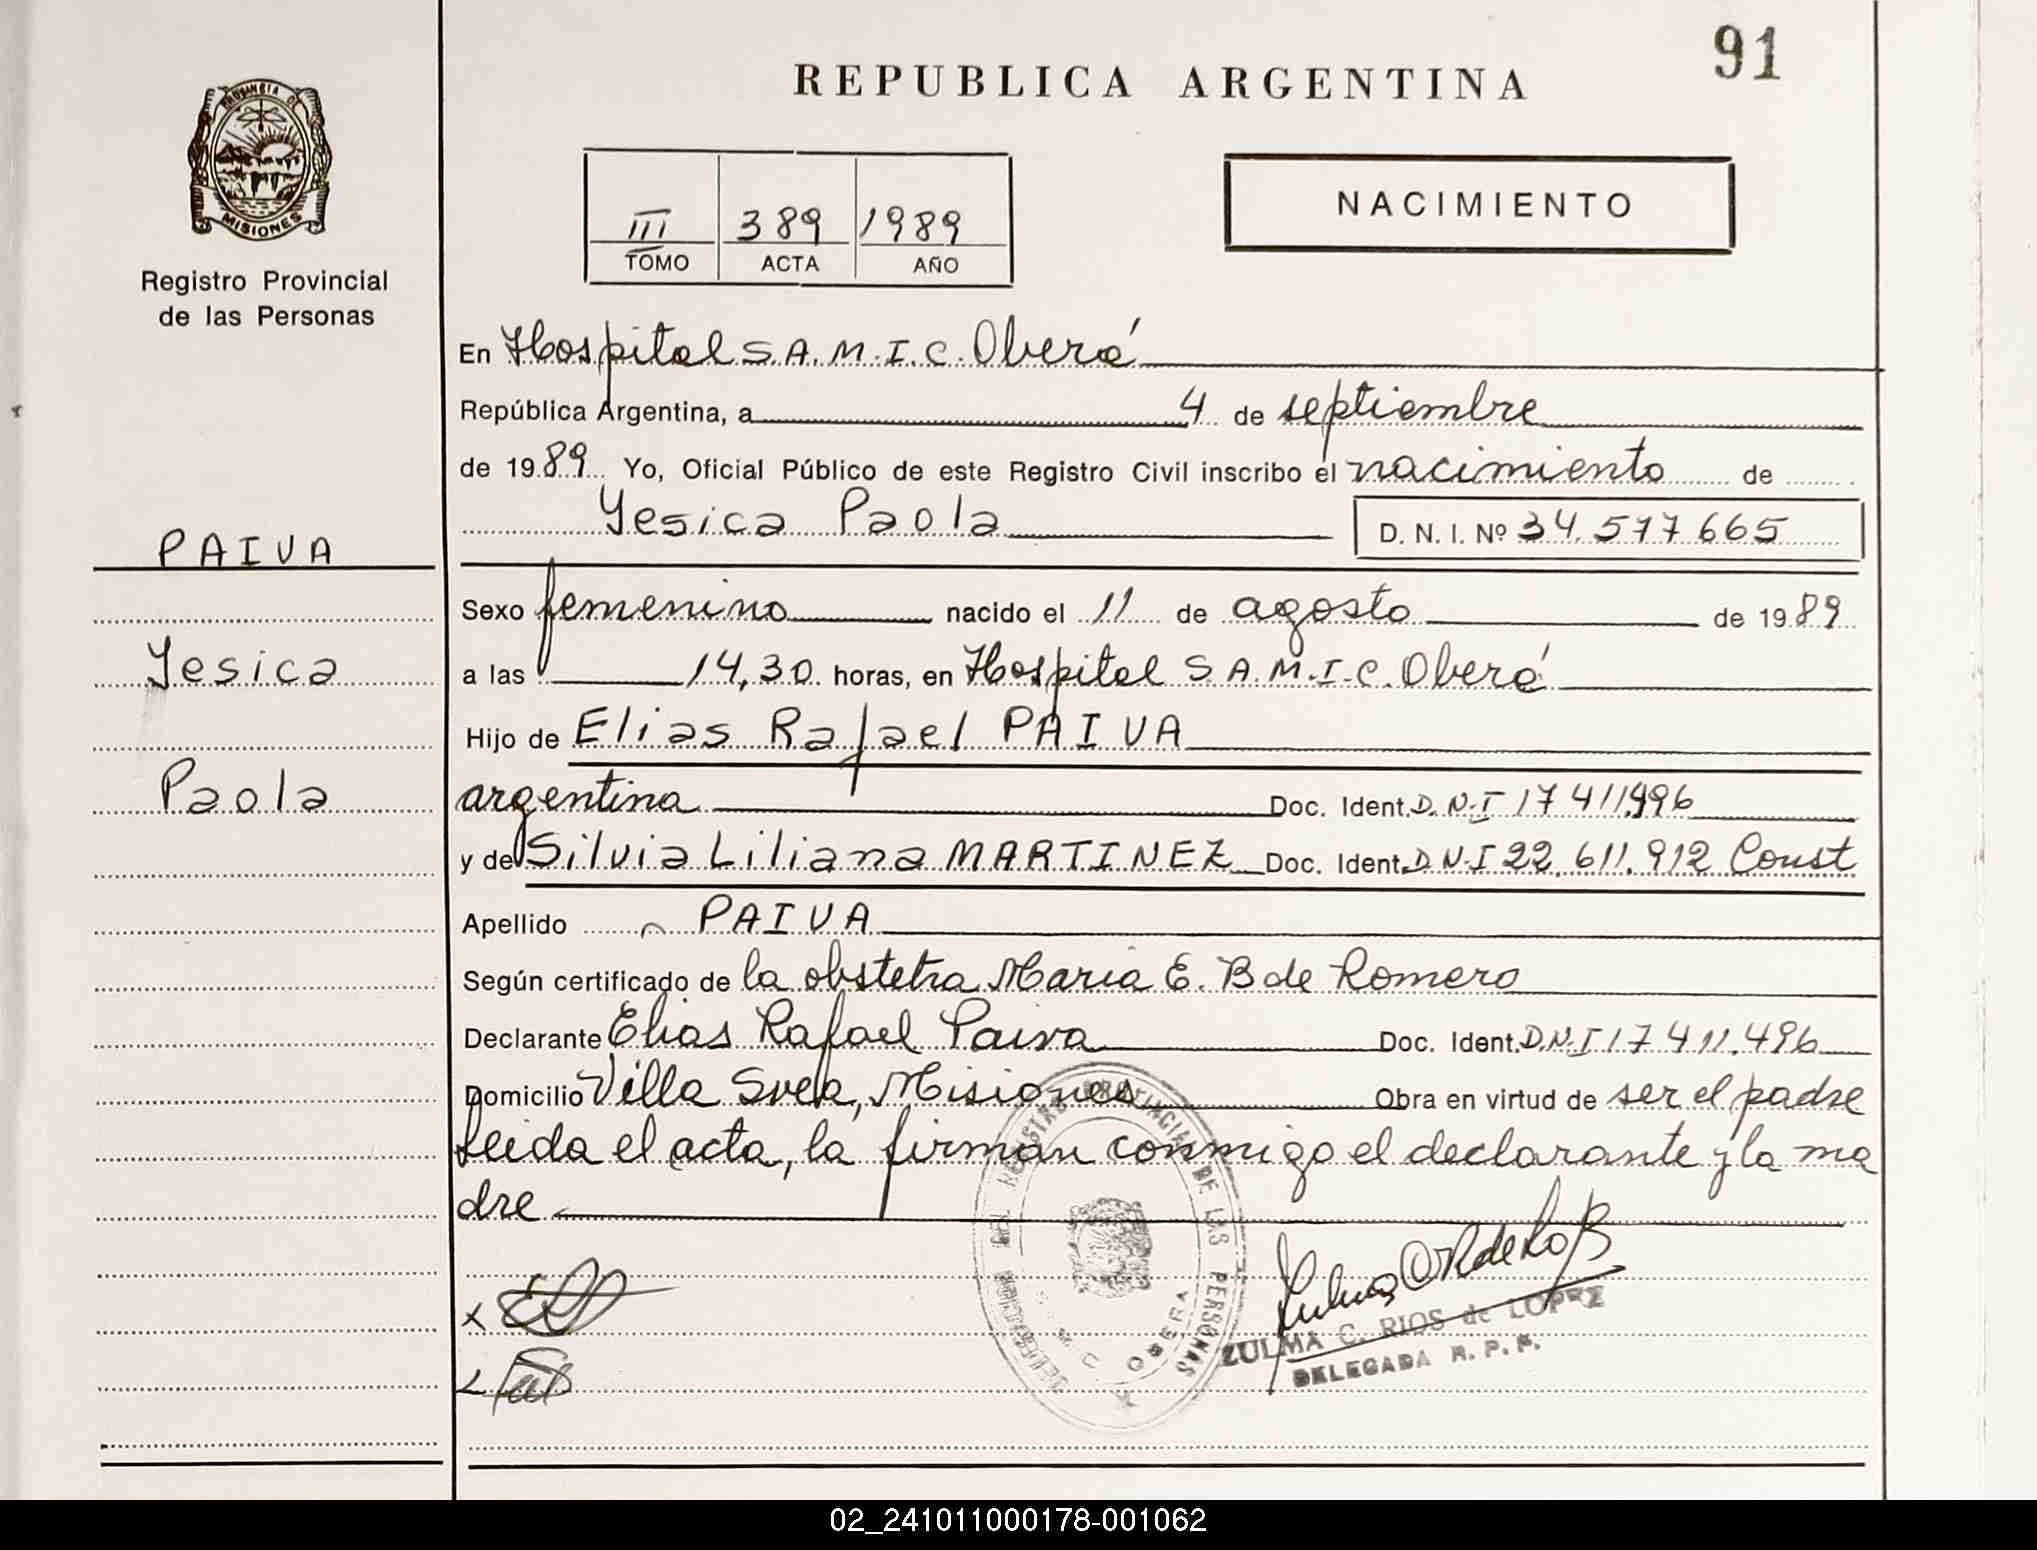 91
REPUBLICA ARGENTINA
PROVINCIA DE
MISIONES
Registro Provincial
de las Personas
III 389 1989
TOMO ACTA AÑO
NACIMIENTO
En Hospital S.A.M.I.C. Oberá
República Argentina, a 4 de septiembre
de 1989 Yo, Oficial Público de este Registro Civil inscribo el nacimiento de
Yesica Paola D. N. I. Nº 34.577665
PAIVA
Sexo femenino nacido el 11 de agosto de 1989
Yesica
a las 14,30 horas, en Hospital S.A.M.I.C. Oberá
Hijo de Elias Rafael PAIVA
Paola
argentina Doc. Ident. D.N.I 17 411.496
y de Silvia Liliana MARTINEZ Doc. Ident. D.N.I 22.611.912 Const
Apellido PAIVA
Según certificado de la obstetra Maria E. B de Romero
Declarante Elias Rafael Paiva Doc. Ident. D.N.I 17 411.496
Domicilio Villa Svea, Misiones Obra en virtud de ser el padre
Leida el acta, la firman conmigo el declarante y la ma
dre
REGISTRO PROVINCIAL DE LAS PERSONAS
OBERA
ZULMA C. RIOS de LOPEZ
DELEGADA R. P. P.
02_241011000178-001062